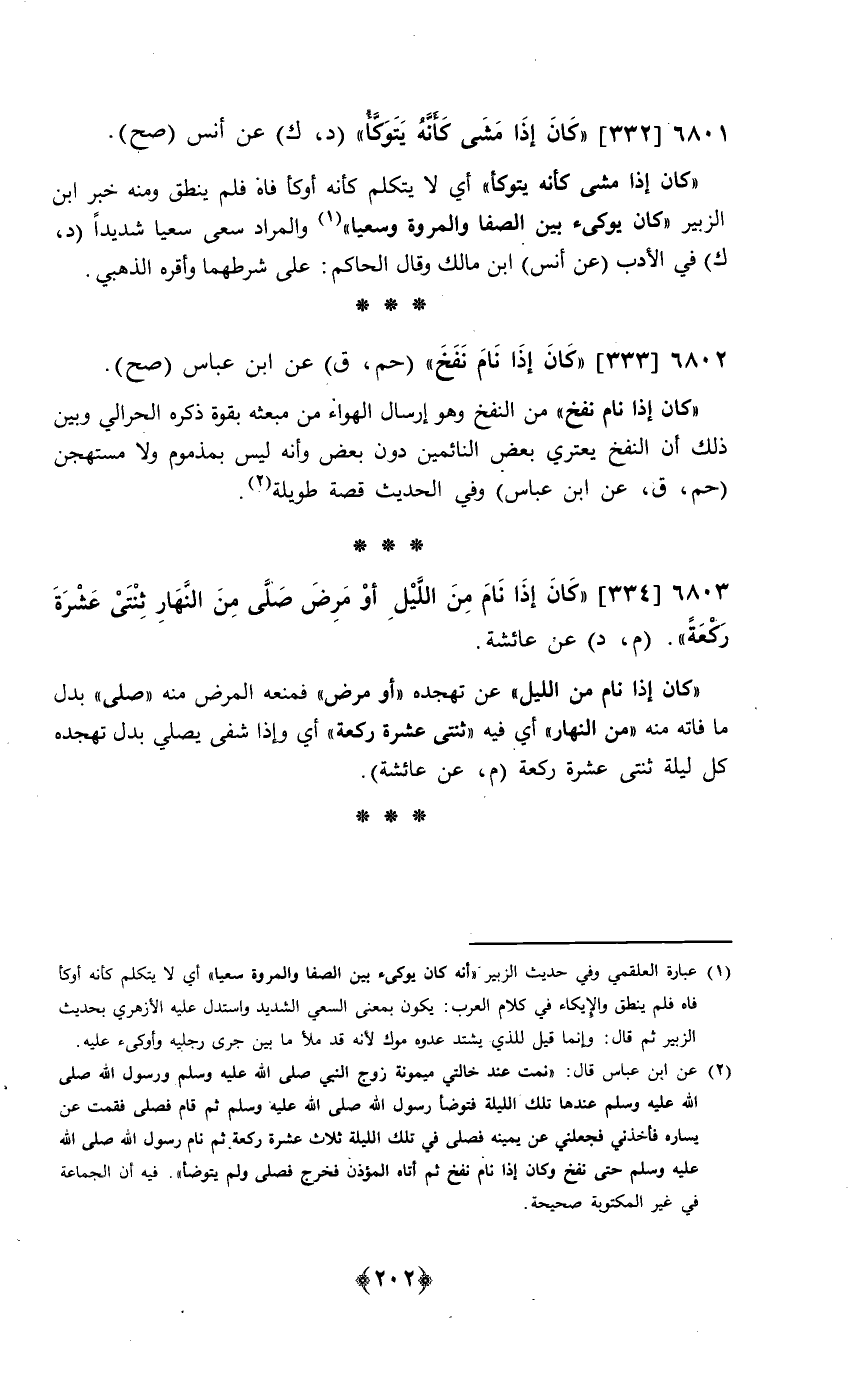 ٦٨٠١ [٣٣٢] «كَانَ إِذَا مَشَى كَأَنَّهُ يَتَوَكَّأُ» (د، ك) عن أنس (صح).
«كان إذا مشى كأنه يتوكأ» أي لا يتكلم كأنه أوكأ فاه فلم ينطق ومنه خبر ابن
الزبير «كان يوكىء بين الصفا والمروة وسعيا»(١) والمراد سعى سعيا شديداً (د،
ك) في الأدب (عن أنس) ابن مالك وقال الحاكم: على شرطهما وأقره الذهبي.
* * *
٦٨٠٢ [٣٣٣] «كَانَ إِذَا نَامَ نَفَخَ» (حم، ق) عن ابن عباس (صح).
«كان إذا نام نفخ» من النفخ وهو إرسال الهواء من مبعثه بقوة ذكره الحرالي وبين
ذلك أن النفخ يعتري بعض النائمين دون بعض وأنه ليس بمذموم ولا مستهجن
(حم، ق، عن ابن عباس) وفي الحديث قصة طويلة(٢).
* * *
٦٨٠٣ [٣٣٤] «كَانَ إِذَا نَامَ مِنَ اللَّيْلِ أَوْ مَرِضَ صَلَّى مِنَ النَّهَارِ ثِنْتَيْ عَشْرَةَ
رَكْعَةً». (م، د) عن عائشة.
«كان إذا نام من الليل» عن تهجده «أو مرض» فمنعه المرض منه «صلى» بدل
ما فاته منه «من النهار» أي فيه «ثنتى عشرة ركعة» أي وإذا شفى يصلي بدل تهجده
كل ليلة ثنتى عشرة ركعة (م، عن عائشة).
* * *
(١) عبارة العلقمي وفي حديث الزبير «أنه كان يوكىء بين الصفا والمروة سعيا» أي لا يتكلم كأنه أوكأ
فاه فلم ينطق والإيكاء في كلام العرب: يكون بمعنى السعي الشديد واستدل عليه الأزهري بحديث
الزبير ثم قال: وإنما قيل للذي يشتد عدوه موك لأنه قد ملأ ما بين جرى رجليه وأوكىء عليه.
(٢) عن ابن عباس قال: «نمت عند خالتي ميمونة زوج النبي صلى الله عليه وسلم ورسول الله صلى
الله عليه وسلم عندها تلك الليلة فتوضأ رسول الله صلى الله عليه وسلم ثم قام فصلى فقمت عن
يساره فأخذني فجعلني عن يمينه فصلى في تلك الليلة ثلاث عشرة ركعة ثم نام رسول الله صلى الله
عليه وسلم حتى نفخ وكان إذا نام نفخ ثم أتاه المؤذن فخرج فصلى ولم يتوضأ». فيه أن الجماعة
في غير المكتوبة صحيحة.
﴿٢٠٢﴾